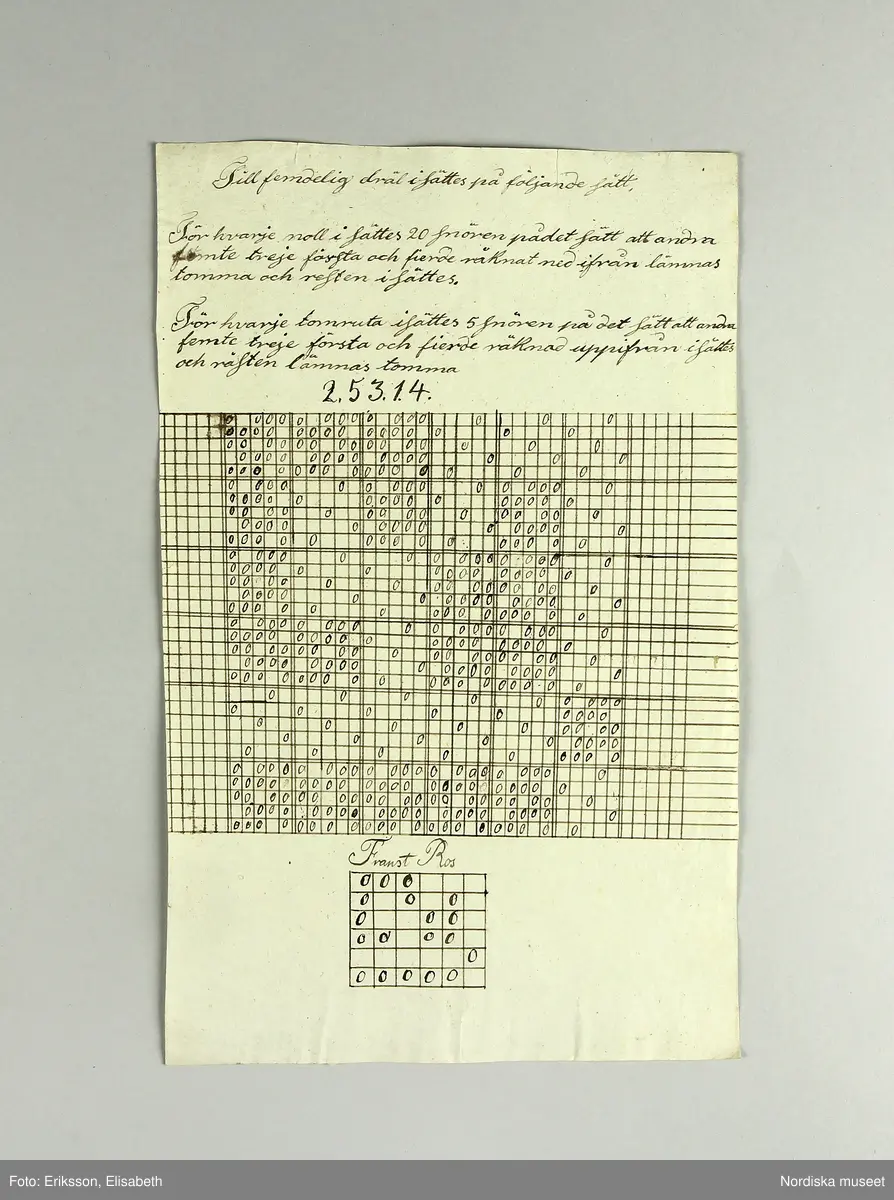 Till femdelig dräl isättes på följande sätt,
För hvarje noll i sättes 20 snören pådet sätt att andra
femte treje första och fierde räknat ned ifrån lämnas
tomma och resten i sättes.
För hvarje tomruta isättes 5 snören på det sätt att andra
femte treje första och fierde räknad uppifrån isättes
och rästen lämnas tomma
2.5 3.1.4.
Franst Ros
Foto: Eriksson, Elisabeth
Nordiska museet